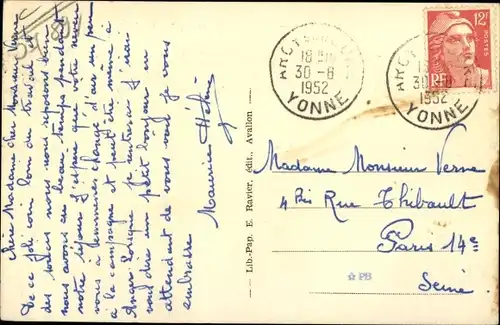 Cher Madame cher Monsieur Verne
De ce joli coin loin du travail et
des soucis nous nous reposons bien
nous avons un beau temps pendant
notre séjour J'espère que votre neveu
vous a changé d'air un peu
à la campagne et peut être même à
Angers lorsque J'
vous dire un petit bonjour en
attendant de vous voir je vous
embrasse
Maurice Hélène
Lib.-Pap. E. Ravier, édit., Avallon
ARCY SUR CURE
18
30-8
1952
YONNE
12F
RF
ARCY
30
1952
YONNE
Madame Monsieur Verne
4 Bis Rue Thibault
Paris 14e
Seine
PB